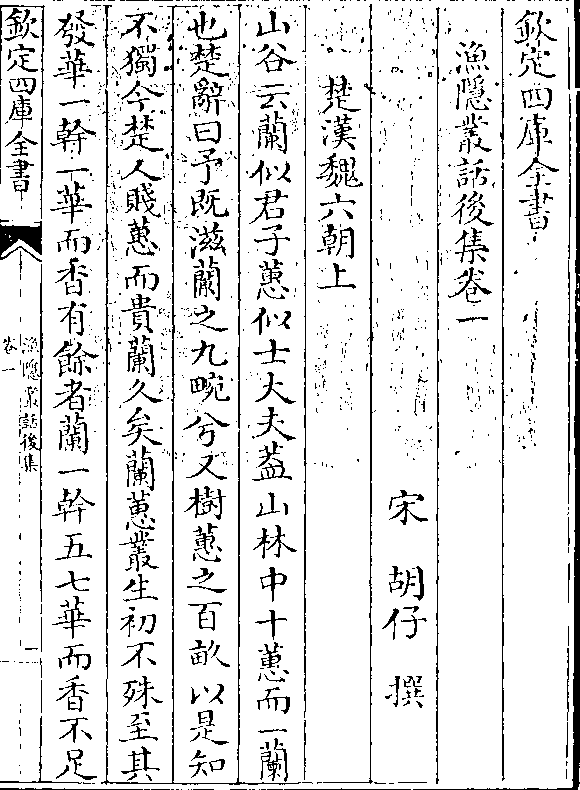 欽定四庫全書
漁隱叢話後集卷一
宋 胡仔 撰
楚漢魏六朝上
山谷云蘭似君子蕙似士大夫葢山林中十蕙而一蘭
也楚辭曰予既滋蘭之九畹兮又樹蕙之百畝以是知
不獨今楚人賤蕙而貴蘭久矣蘭蕙叢生初不殊至其
發華一幹一華而香有餘者蘭一幹五七華而香不足
欽定四庫全書
漁隱叢話後集
卷一
一